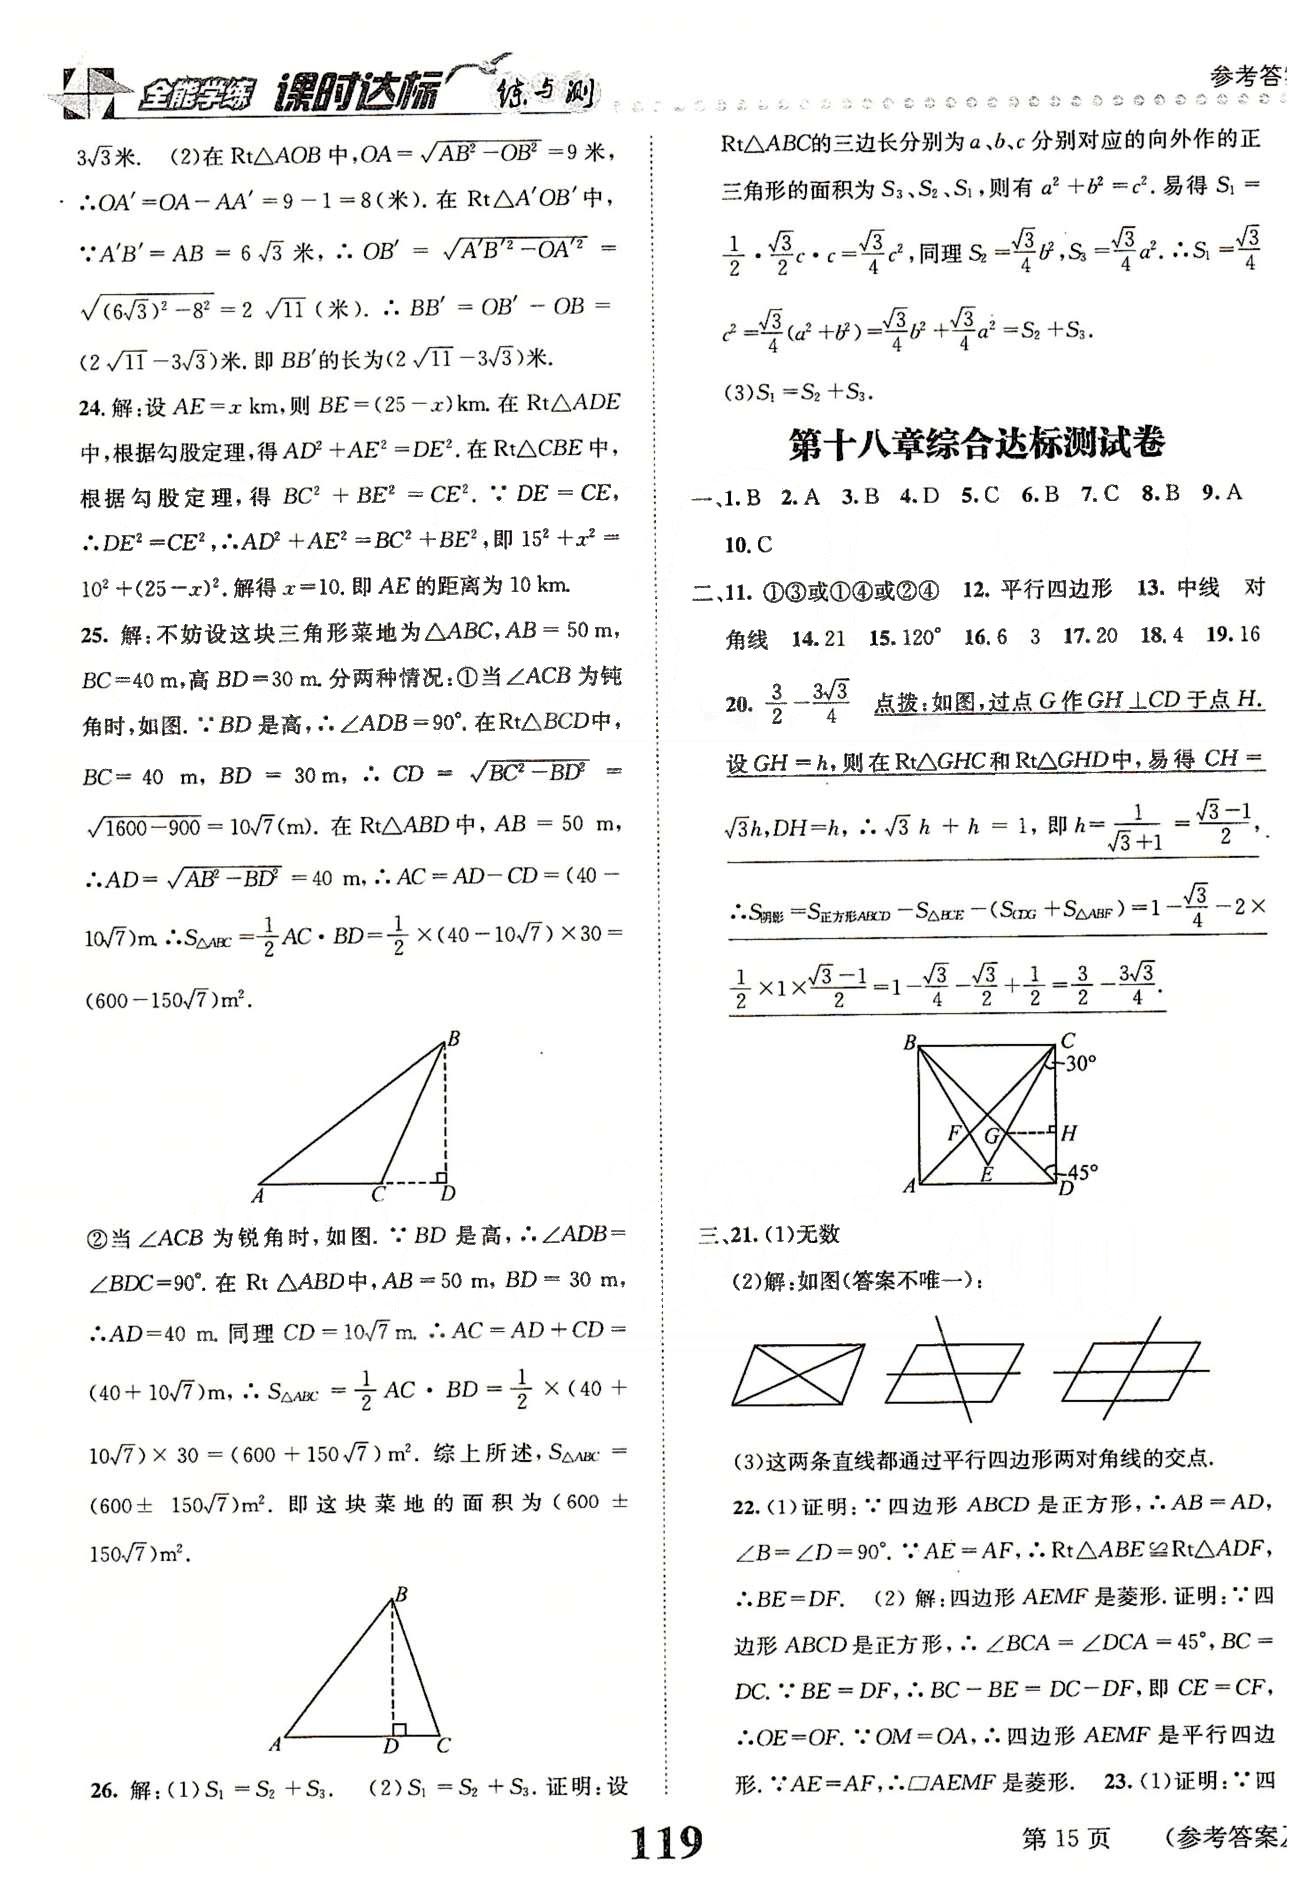 全能学练 课时达标 练与测
参考答
3√3米. (2)在 Rt△AOB 中,OA=√(AB²-OB²)=9 米,
∴OA′=OA-AA′=9-1=8(米). 在 Rt△A′OB′中,
∵A′B′=AB=6√3 米,∴OB′=√(A′B′²-OA′²)=
√((6√3)²-8²)=2√11(米). ∴BB′=OB′-OB=
(2√11-3√3)米. 即 BB′的长为(2√11-3√3)米.
24. 解:设 AE=x km,则 BE=(25-x)km. 在 Rt△ADE
中,根据勾股定理,得 AD²+AE²=DE². 在 Rt△CBE 中,
根据勾股定理,得 BC²+BE²=CE². ∵DE=CE,
∴DE²=CE²,∴AD²+AE²=BC²+BE²,即 15²+x²=
10²+(25-x)². 解得 x=10. 即 AE 的距离为 10 km.
25. 解:不妨设这块三角形菜地为△ABC,AB=50 m,
BC=40 m,高 BD=30 m. 分两种情况:①当∠ACB 为钝
角时,如图. ∵BD 是高,∴∠ADB=90°. 在Rt△BCD中,
BC=40 m,BD=30 m,∴CD=√(BC²-BD²)=
√(1600-900)=10√7(m). 在 Rt△ABD 中,AB=50 m,
∴AD=√(AB²-BD²)=40 m,∴AC=AD-CD=(40-
10√7)m. ∴S△ABC=1/2 AC·BD=1/2×(40-10√7)×30=
(600-150√7)m².
B
A C D
②当∠ACB 为锐角时,如图. ∵BD 是高,∴∠ADB=
∠BDC=90°. 在 Rt△ABD中,AB=50 m,BD=30 m,
∴AD=40 m. 同理 CD=10√7 m. ∴AC=AD+CD=
(40+10√7)m,∴S△ABC=1/2 AC·BD=1/2×(40+
10√7)×30=(600+150√7)m². 综上所述,S△ABC=
(600±150√7)m². 即这块菜地的面积为(600±
150√7)m².
B
A D C
26. 解:(1)S₁=S₂+S₃. (2)S₁=S₂+S₃. 证明:设
Rt△ABC的三边长分别为 a、b、c 分别对应的向外作的正
三角形的面积为 S₃、S₂、S₁,则有 a²+b²=c². 易得 S₁=
1/2·√3/2 c·c=√3/4 c²,同理 S₂=√3/4 b²,S₃=√3/4 a². ∴S₁=√3/4
c²=√3/4(a²+b²)=√3/4 b²+√3/4 a²=S₂+S₃.
(3)S₁=S₂+S₃.
第十八章综合达标测试卷
一、1. B 2. A 3. B 4. D 5. C 6. B 7. C 8. B 9. A
10. C
二、11. ①③或①④或②④ 12. 平行四边形 13. 中线 对
角线 14. 21 15. 120° 16. 6 3 17. 20 18. 4 19. 16
20. 3/2-3√3/4 点拨:如图,过点 G 作 GH⊥CD 于点 H.
设 GH=h,则在 Rt△GHC和 Rt△GHD中,易得 CH=
√3h,DH=h,∴√3h+h=1,即 h=1/(√3+1)=(√3-1)/2,
∴S阴影=S正方形ABCD-S△BCE-(S△CDG+S△ABF)=1-√3/4-2×
1/2×1×(√3-1)/2=1-√3/4-√3/2+1/2=3/2-3√3/4.
B C
30°
F G H
E
45°
A D
三、21. (1)无数
(2)解:如图(答案不唯一):
(3)这两条直线都通过平行四边形两对角线的交点.
22. (1)证明:∵四边形 ABCD 是正方形,∴AB=AD,
∠B=∠D=90°. ∵AE=AF,∴Rt△ABE≌Rt△ADF,
∴BE=DF. (2) 解:四边形 AEMF 是菱形. 证明:∵四
边形 ABCD是正方形,∴∠BCA=∠DCA=45°,BC=
DC. ∵BE=DF,∴BC-BE=DC-DF,即 CE=CF,
∴OE=OF. ∵OM=OA,∴四边形 AEMF 是平行四边
形. ∵AE=AF,∴□AEMF 是菱形. 23. (1)证明:∵四
119
第 15 页 (参考答案